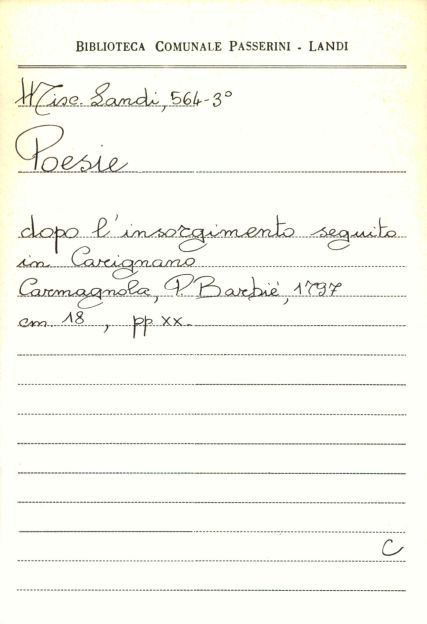 BIBLIOTECA COMUNALE PASSERINI - LANDI
Misc. Landi, 564-3°
Poesie
dopo l'insorgimento seguito
in Carignano
Carmagnola, P. Barbié, 1797
cm 18 , pp xx.
C